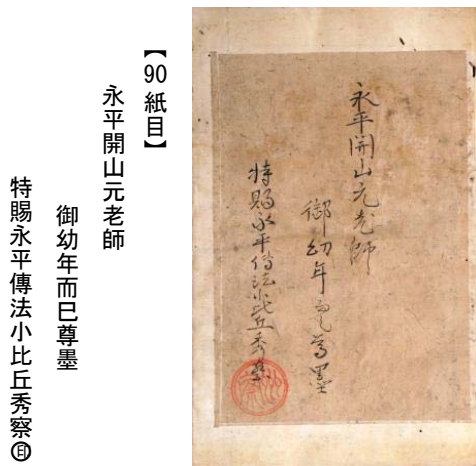 【90紙目】
永平開山元老師
御幼年而已尊墨
特賜永平傳法小比丘秀察㊞
永平開山元老師
御幼年而已尊墨
特賜永平傳法小比丘秀察